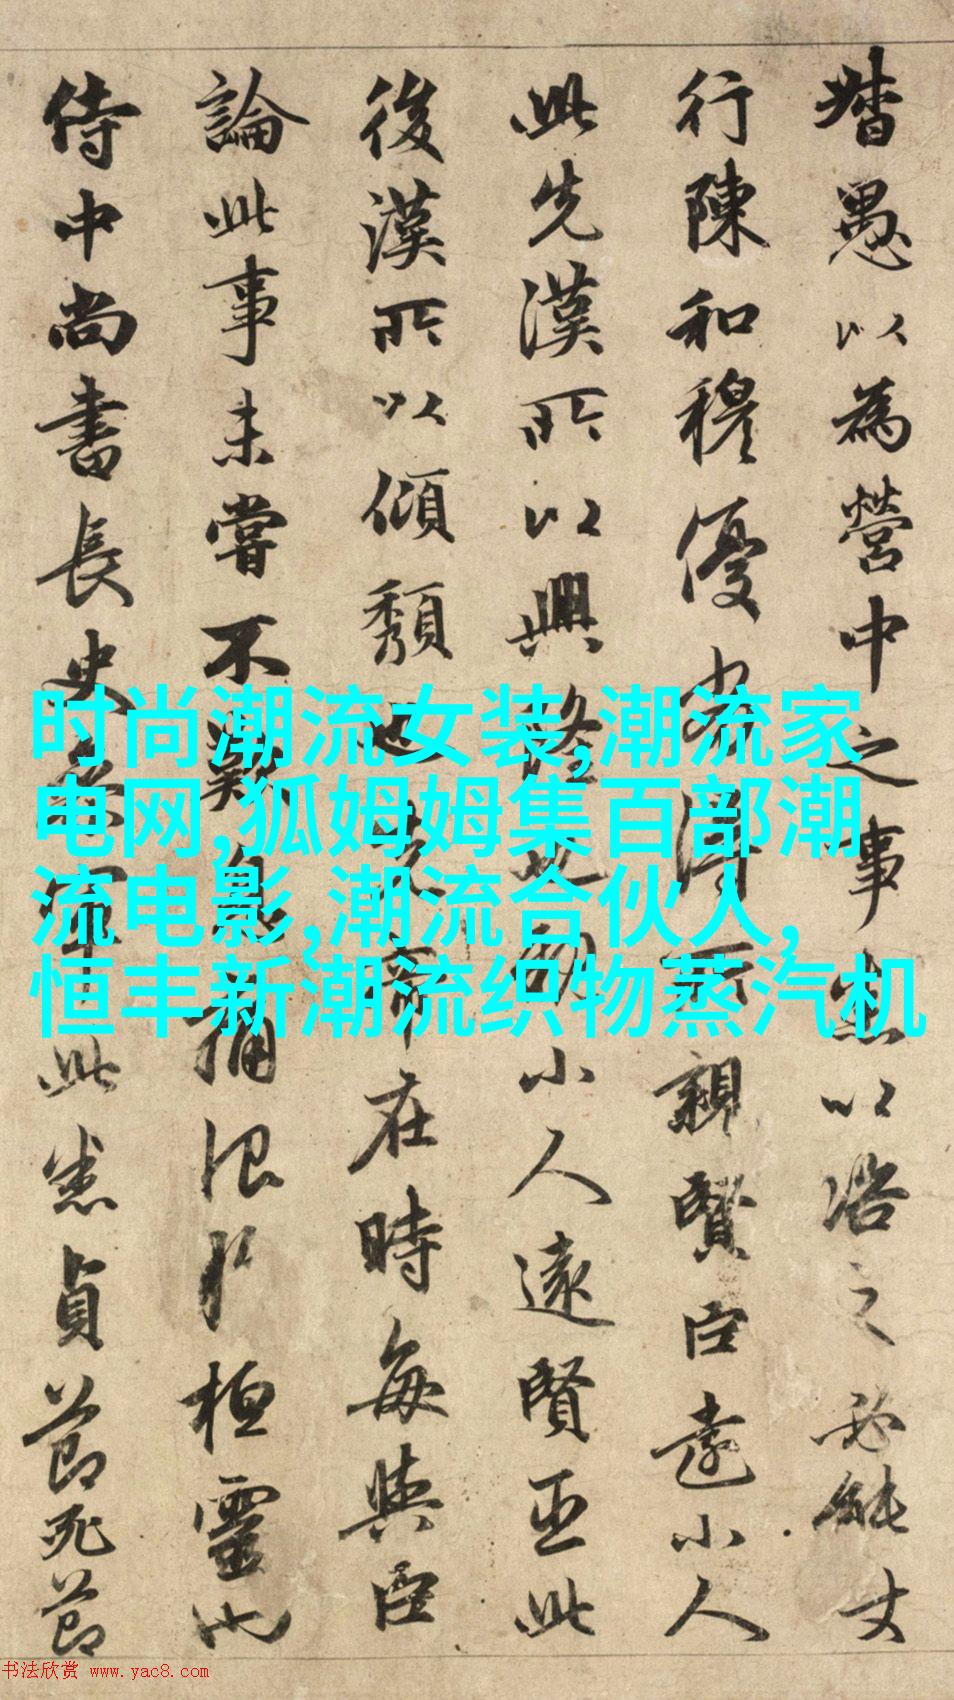 督愚以為營中之事悉以之必能
行陳和穆優劣得所親賢臣遠小人
此先漢所以興隆也親小人遠賢臣此
後漢所以傾頹也先帝在時每與臣
論此事未嘗不歎息痛恨於桓靈也
侍中尚書長史參軍此悉貞節死節
时尚潮流女装,潮流家
电网,狐姆姆集百部潮
流电影,潮流合伙人,
恒丰新潮流织物蒸汽机
书法欣赏 www.yac8.com